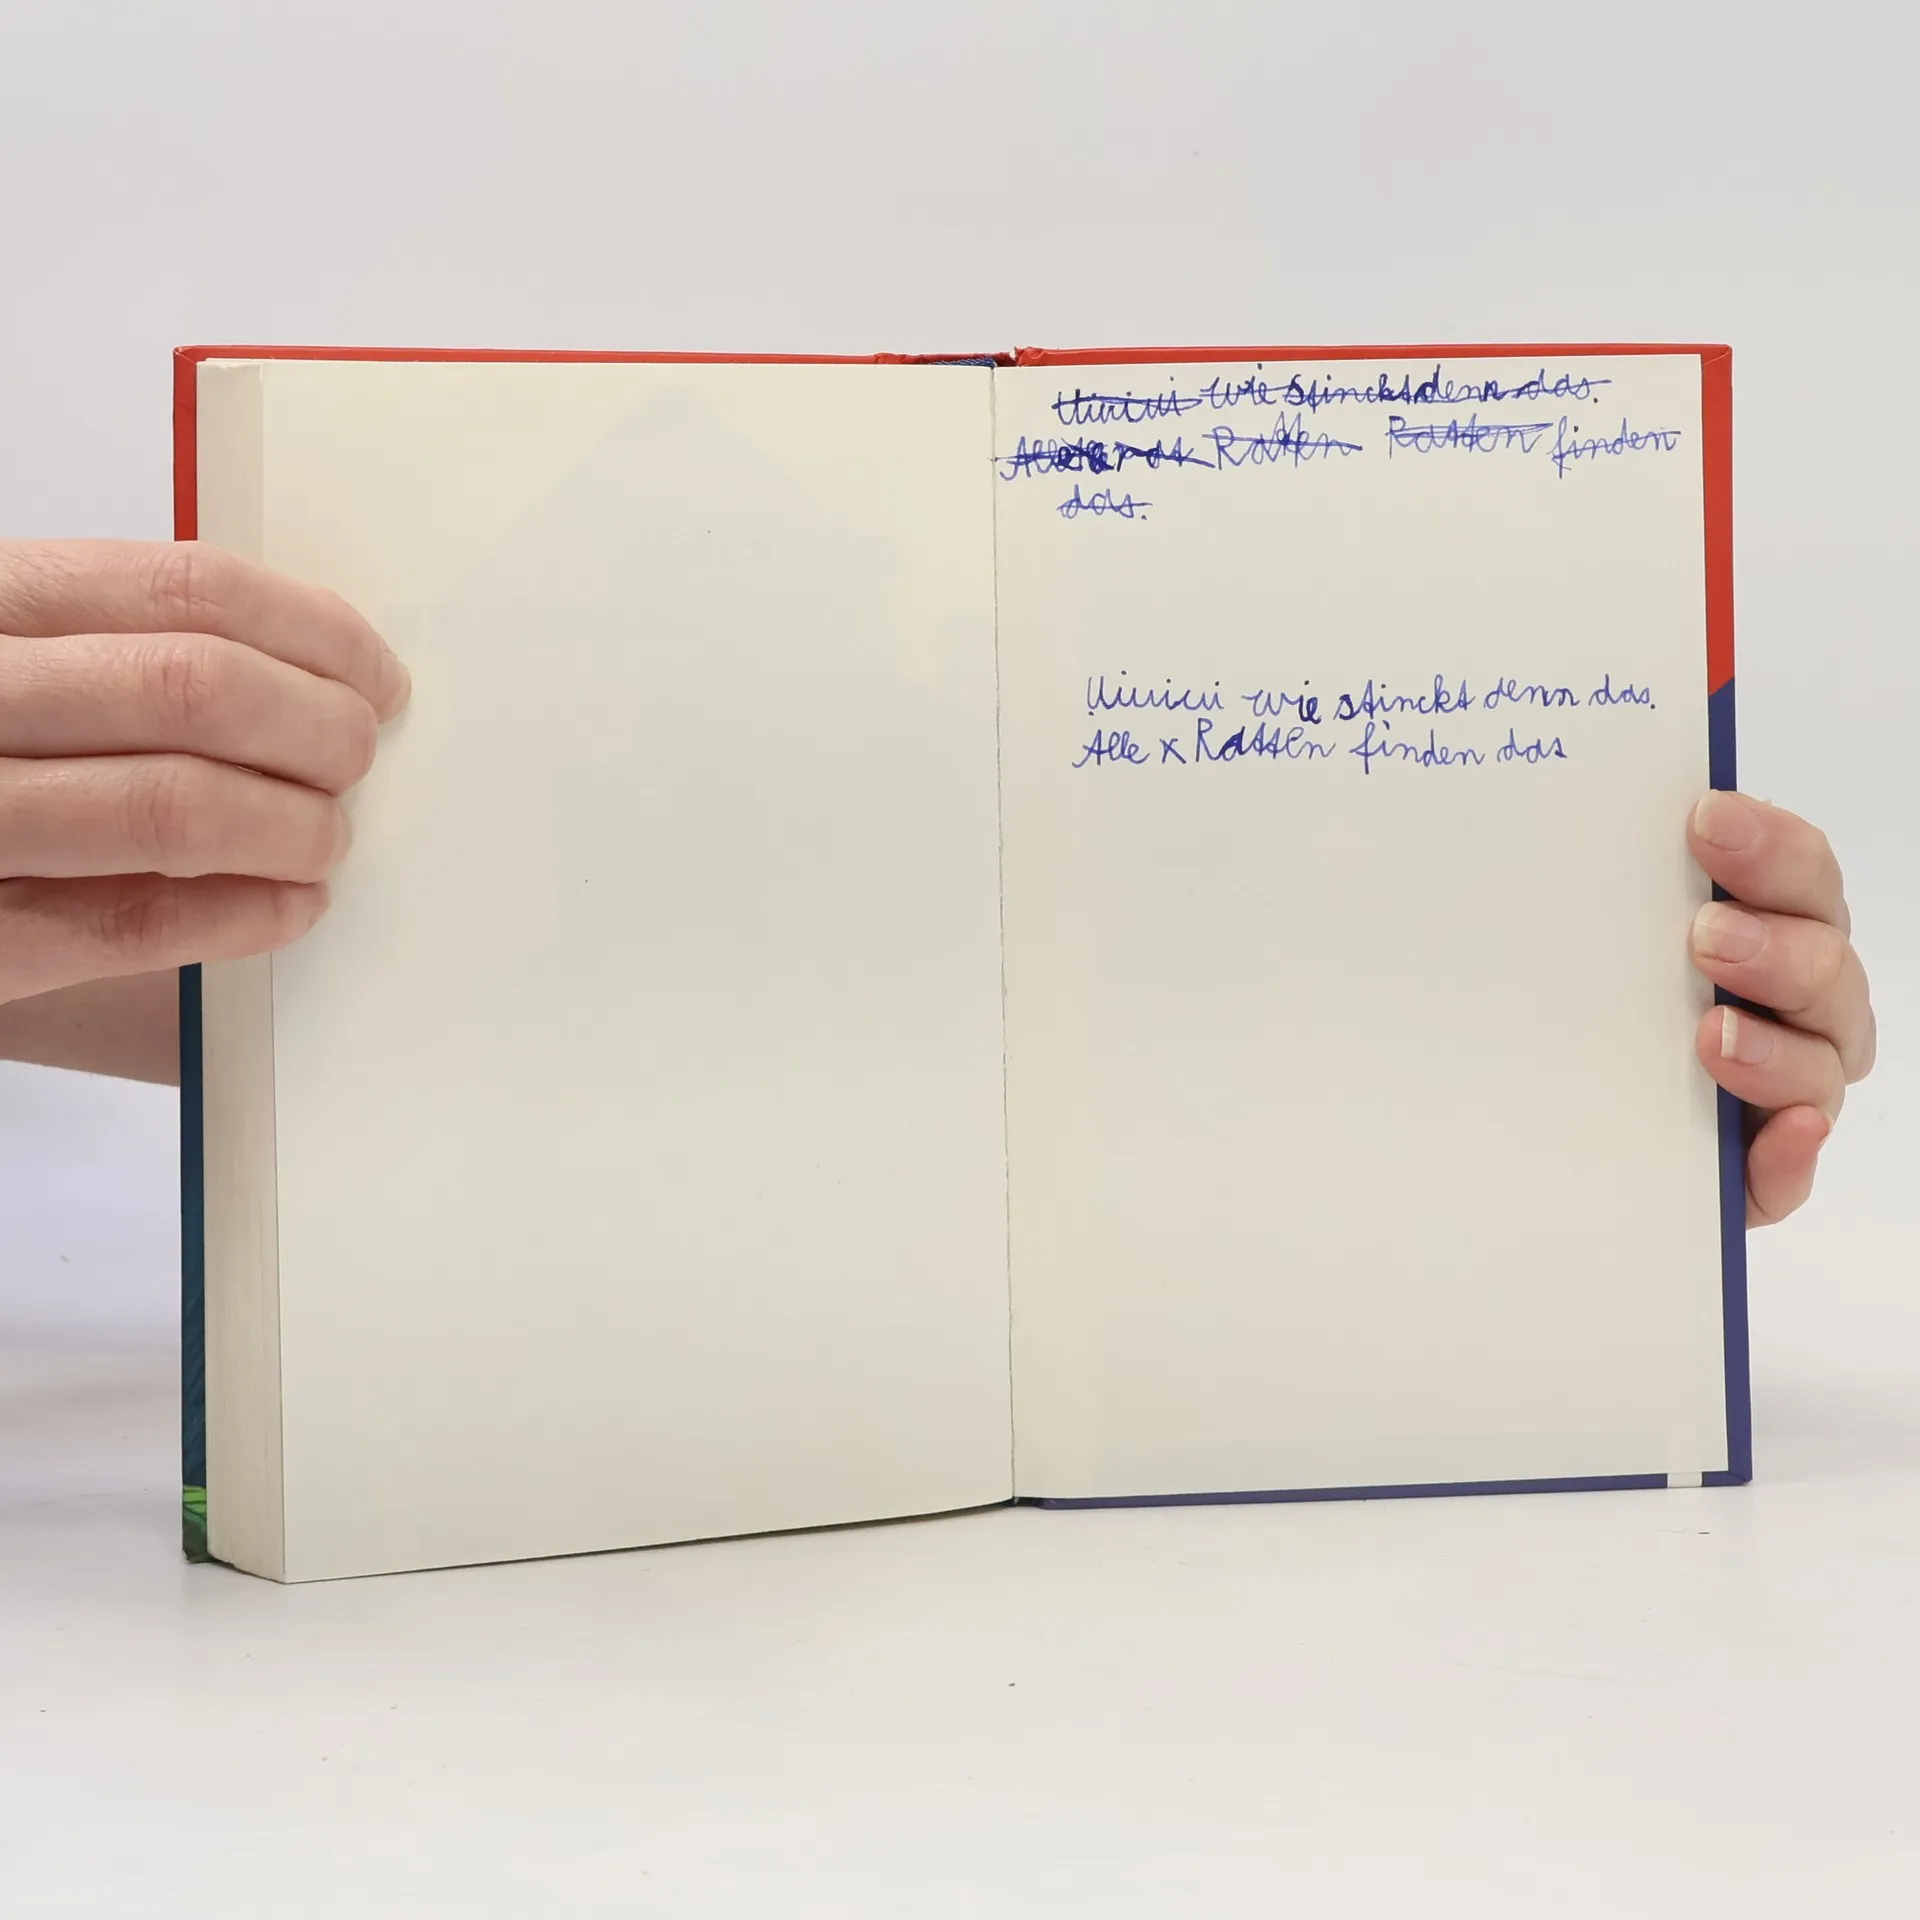 Uiuiui wie stinckt denn das.
Ratten Ratten finden
das.
Uiuiui wie stinckt denn das.
Alle x Ratten finden das